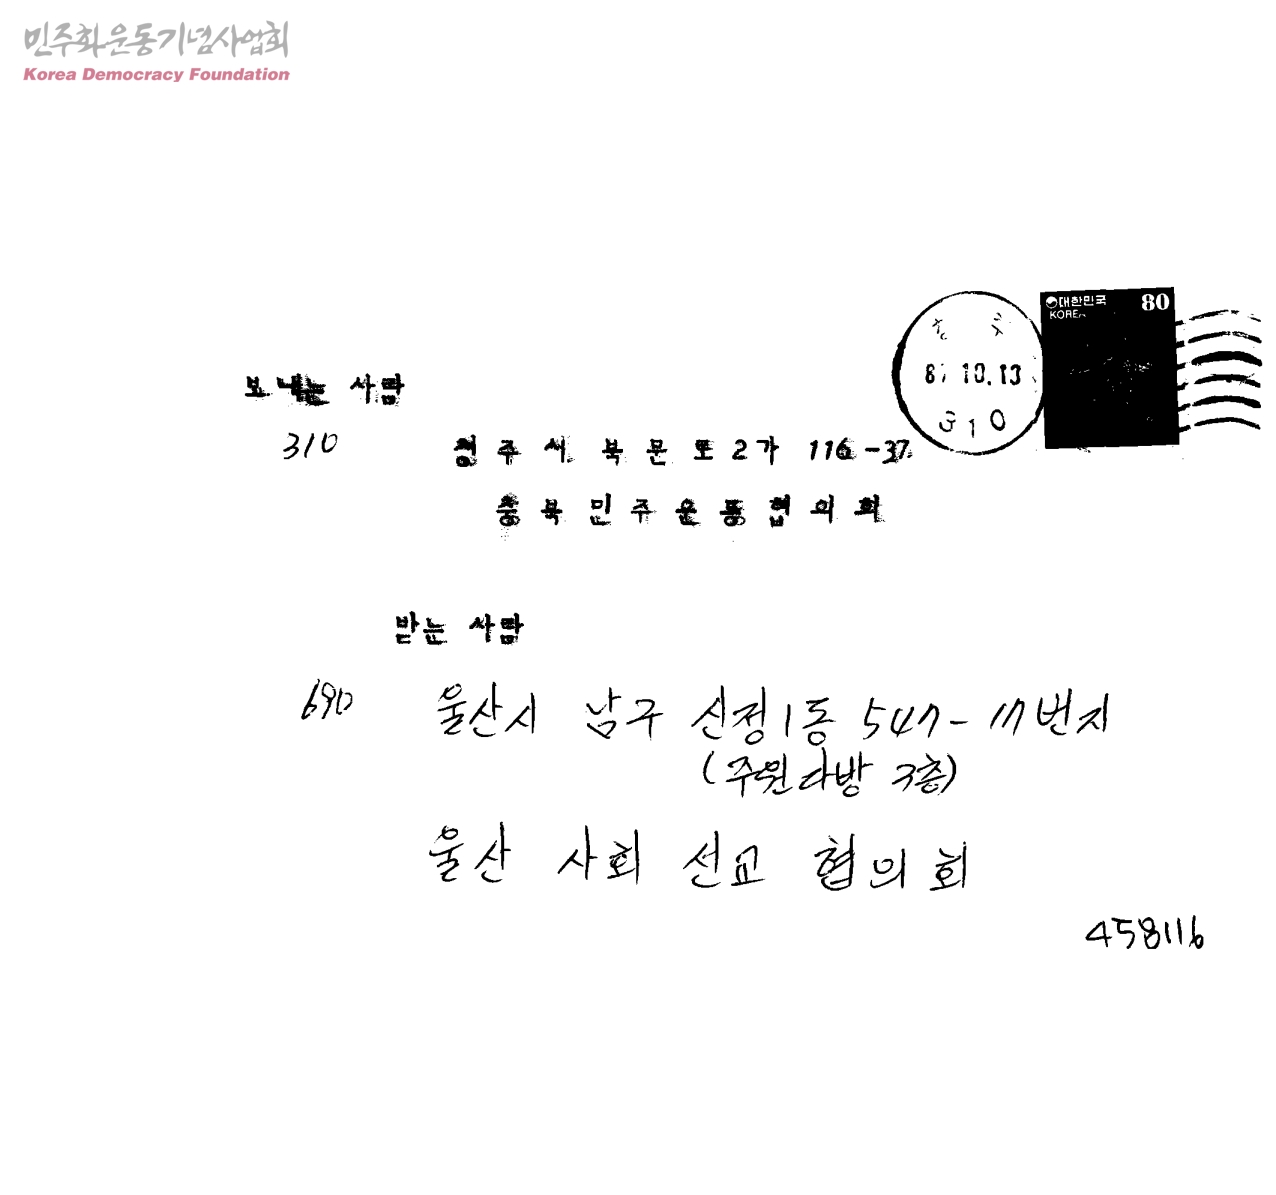 민주화운동기념사업회
Korea Democracy Foundation
대한민국 80
KOREA
청주
87.10.13
310
보내는 사람
310 청주시 북문로2가 116-37
충북민주운동협의회
받는 사람
690 울산시 남구 신정1동 547-17번지
(주원다방 3층)
울산 사회 선교 협의회
458116